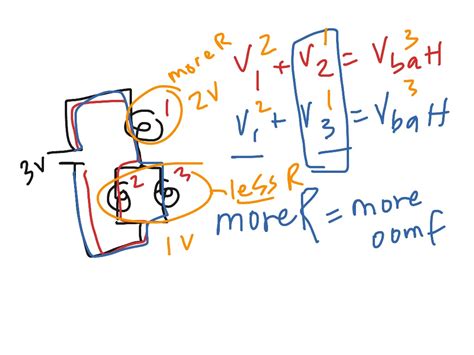 more R
1
2V
3V
2
3
less R
1V
2 1 3
V1 + V2 = Vbatt
2 1 3
V1 + V3 = Vbatt
more R = more
oomf